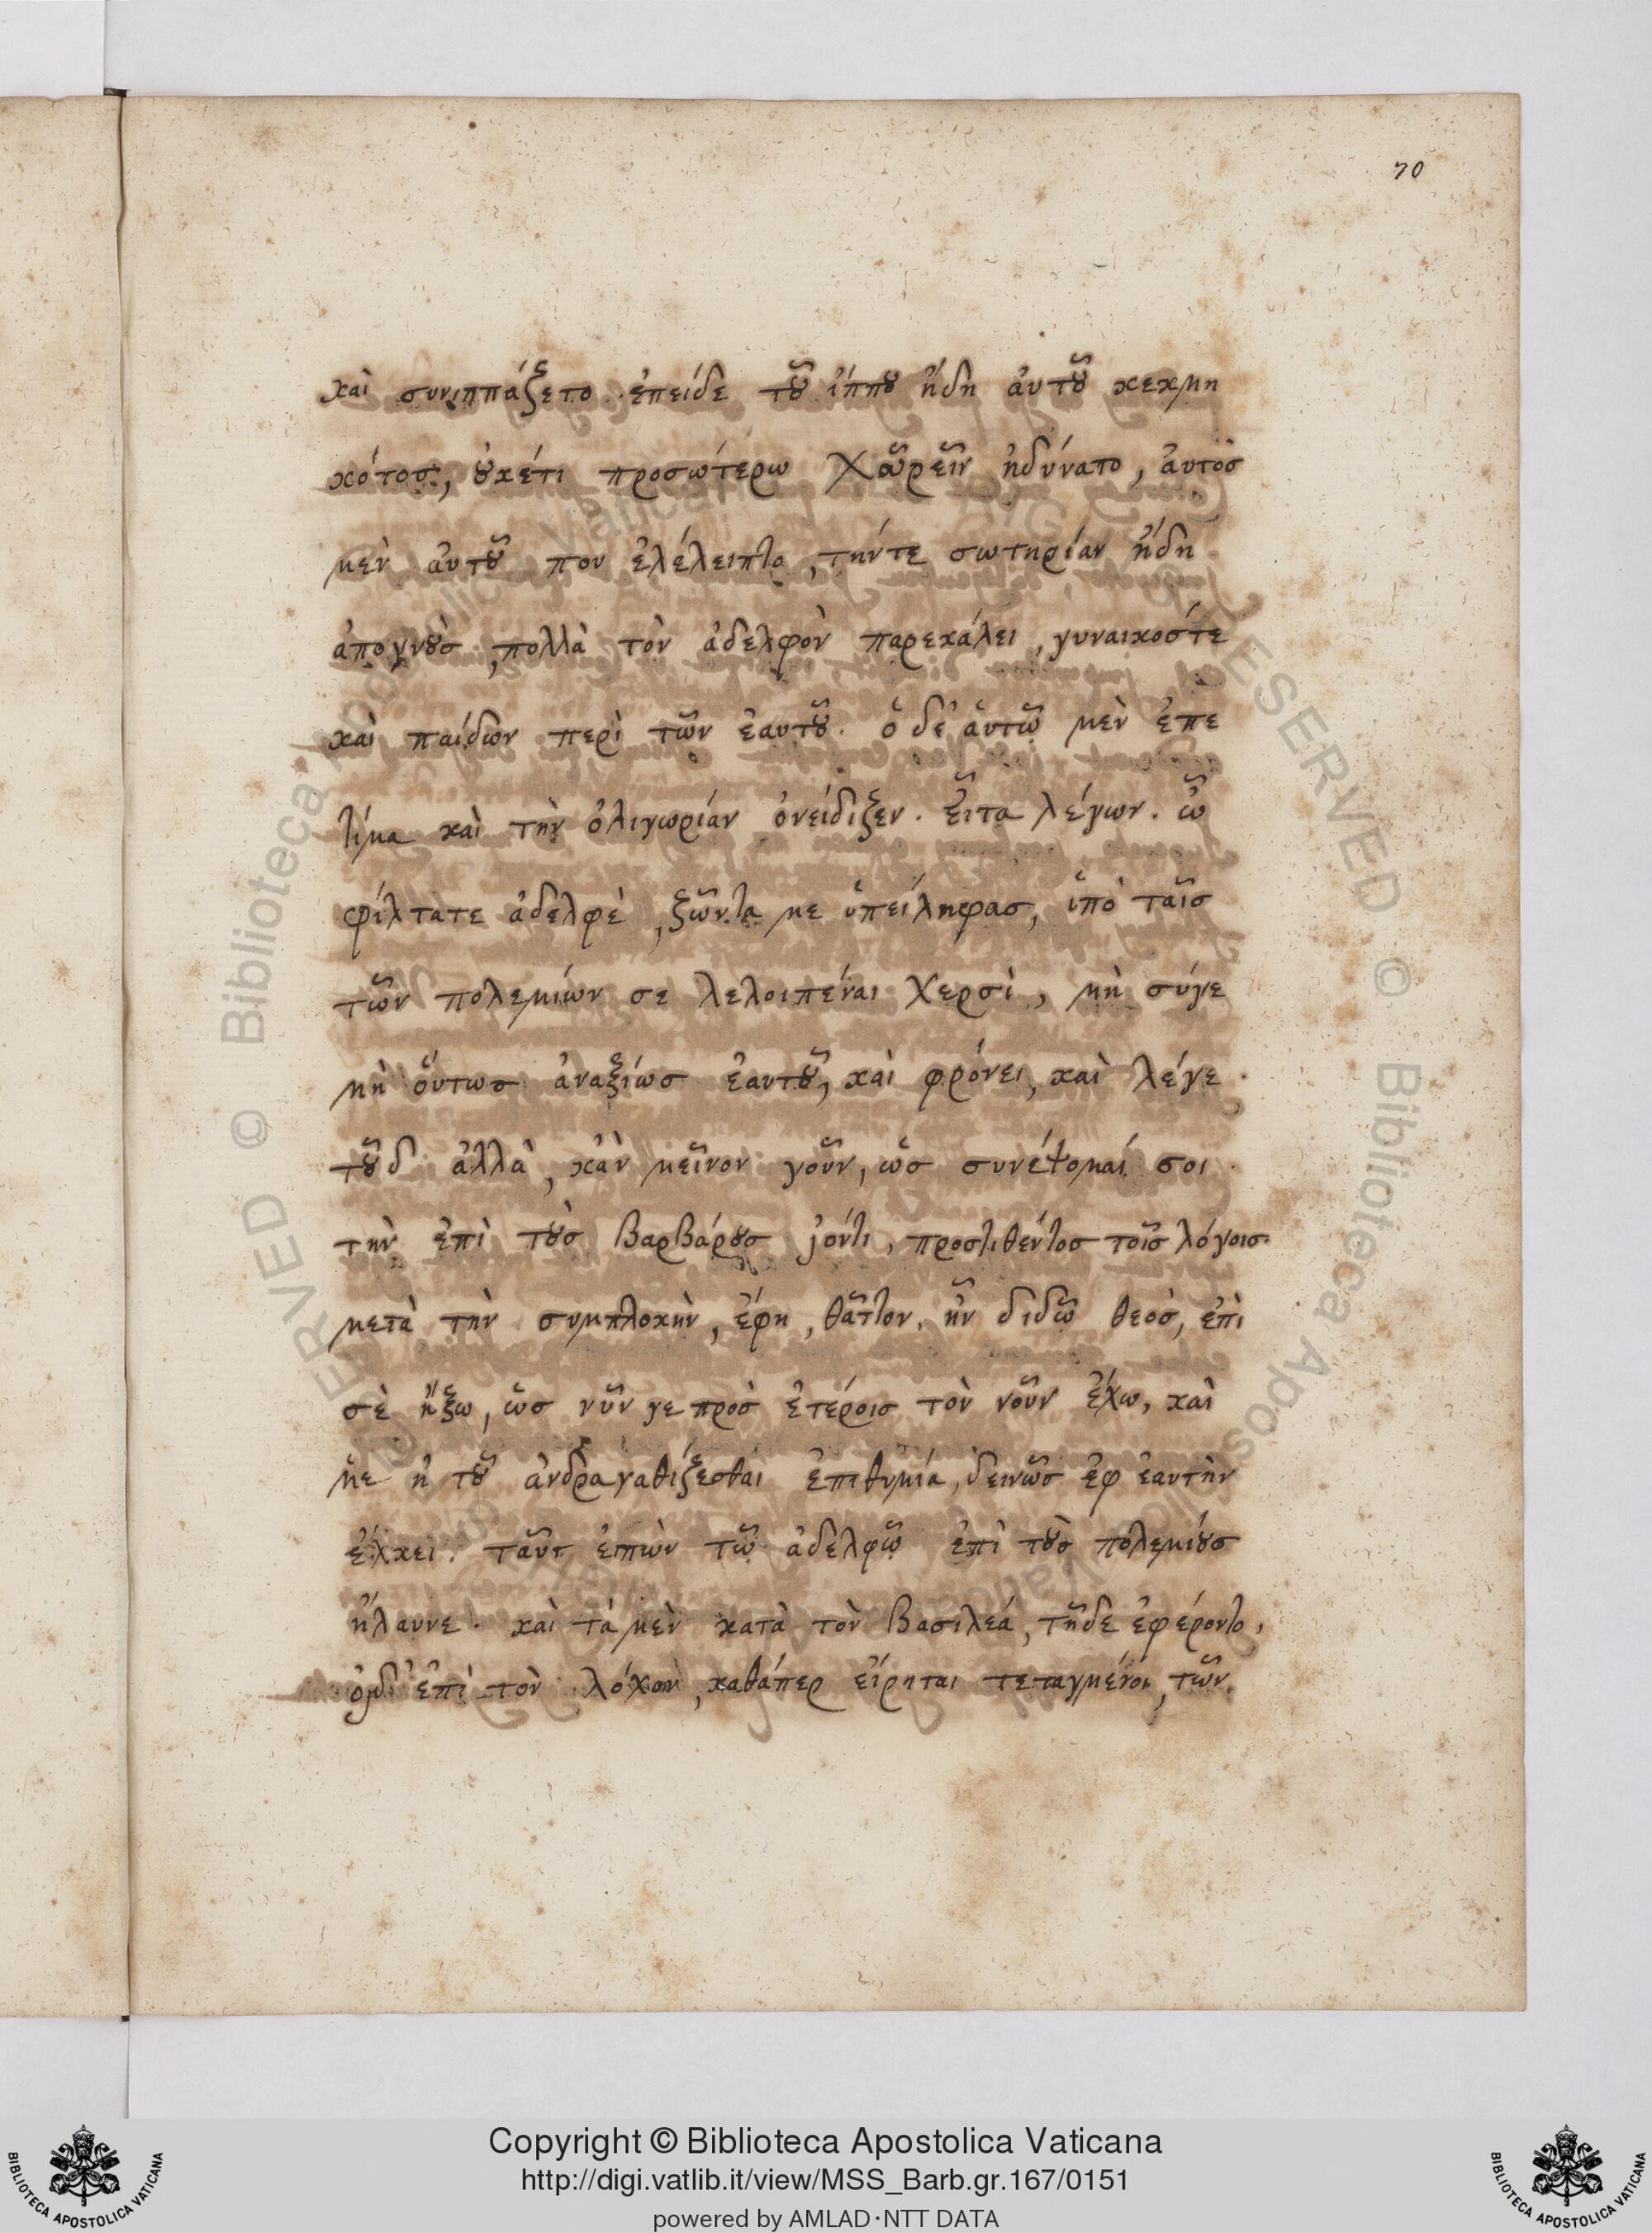 70
καὶ συνιππάζετο. ἐπείδε τȣ͂ ἱππȣ ἤδη ἀυτȣ͂ κεκμη
κότος, ȣ̓κέτι προσωτέρω χωρεῖν ἠδύνατο, ἀυτὸσ
μὲν ἀυτȣ͂ που ἐλέλειπτο, τήντε σωτηρίαν ἤδη
ἀπογνȣ̀σ, πολλὰ τὸν ἀδελφὸν παρεκάλει, γυναικοστε
καὶ παίδων περὶ τῶν ἑαυτȣ͂. ὁ δε ἀυτῷ μὲν ἐπε
τίμα καὶ τὴν ὀλιγωρίαν ὀνείδιζεν. εἶτα λέγων. ὦ
φίλτατε ἀδελφὲ, ζῶντα με ὑπείληφασ, ὑπὸ ταῖσ
τῶν πολεμίων σε λελοιπέναι χερσὶ, μὴ σύγε
μὴ ὅυτωσ ἀναξίωσ ἑαυτȣ͂, καὶ φρόνει, καὶ λέγε.
τȣ͂δ ἀλλὰ, κἀν μεῖνον γοῦν, ὡσ συνέψομαί σοι.
τὴν ἐπὶ τȣ̀σ βαρβάρȣσ ἰόντι, προστιθέντοσ τοῖσ λόγοισ.
μετὰ τὴν συμπλοκὴν, ἔφη, θᾶττον, ἢν διδῷ θεὸσ, ἐπὶ
σὲ ἥξω, ὡσ νῦν γε πρὸσ ἑτέροισ τὸν νοῦν ἔχω, καὶ
με ἡ τȣ͂ ἀνδραγαθίζεσθαι ἐπιθυμία, δεινῶσ ἐφ ἑαυτὴν
ἕλκει. ταῦτ ἐιπὼν τῷ ἀδελφῷ ἐπὶ τȣ̀σ πολεμίȣσ
ἤλαυνε. καὶ τὰ μὲν κατὰ τὸν βασιλεά, τῇδε ἐφέροντο,
ὁιδ ἐπὶ τὸν λόχον, καθάπερ εἴρηται τεταγμένοι, τῶν
Copyright © Biblioteca Apostolica Vaticana
http://digi.vatlib.it/view/MSS_Barb.gr.167/0151
powered by AMLAD·NTT DATA